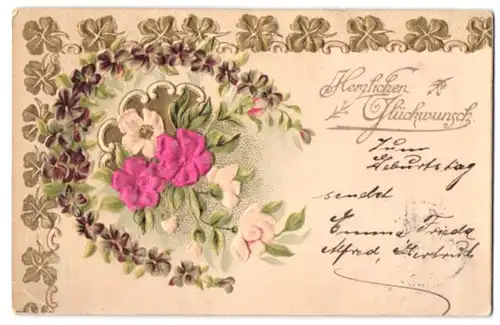 Herzlichen
Glückwunsch
Zum
Geburtstag
sendet
Emma Frieda
Alfred, Gertrud